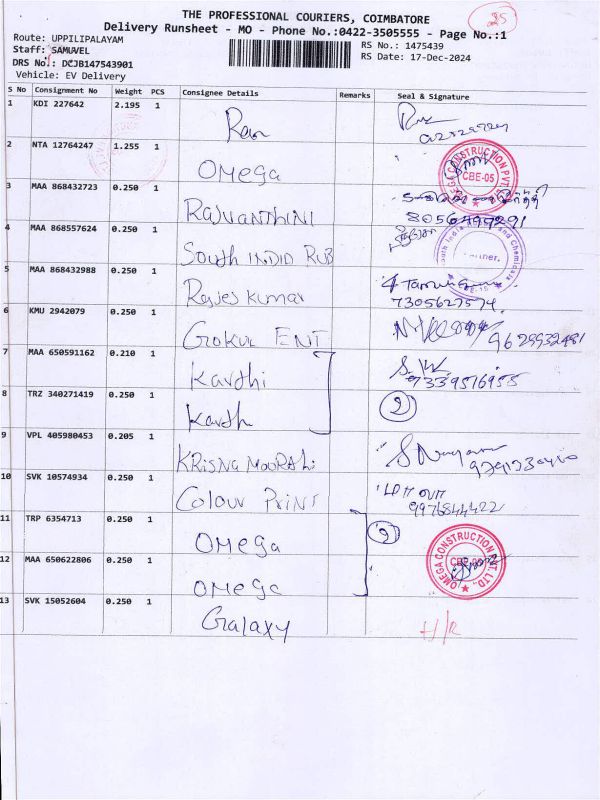 25
THE PROFESSIONAL COURIERS, COIMBATORE
Delivery Runsheet - MO - Phone No.:0422-3505555 - Page No.:1
Route: UPPILIPALAYAM
RS No.: 1475439
Staff: SAMUVEL
RS Date: 17-Dec-2024
DRS No.: DCJB147543901
Vehicle: EV Delivery
S No Consignment No Weight PCS Consignee Details Remarks Seal & Signature
1 KDI 227642 2.195 1 Ram
2 NTA 12764247 1.255 1 OMega
OMEGA CONSTRUCTION PVT. LTD. CBE-05
3 MAA 868432723 0.250 1 RAJVANTHINI
8056499291
4 MAA 868557624 0.250 1 South INDIO RUB
South India and Chemicals
5 MAA 868432988 0.250 1 Rajes Kumar
7305627574
6 KMU 2942079 0.250 1 Gokul ENT 9629932481
7 MAA 650591162 0.210 1 Karthi 9339516955
8 TRZ 340271419 0.250 1 Karth 2
9 VPL 405980453 0.205 1 KRisna MooRthi
10 SVK 10574934 0.250 1 Colour Print
9976844422
11 TRP 6354713 0.250 1 OMega 2
OMEGA CONSTRUCTION PVT. LTD.,
12 MAA 650622806 0.250 1 OMega
13 SVK 15052604 0.250 1 Galaxy H/R